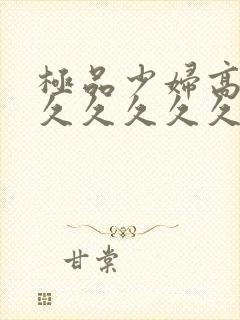 極品少婦高
久久久久久
甘棠